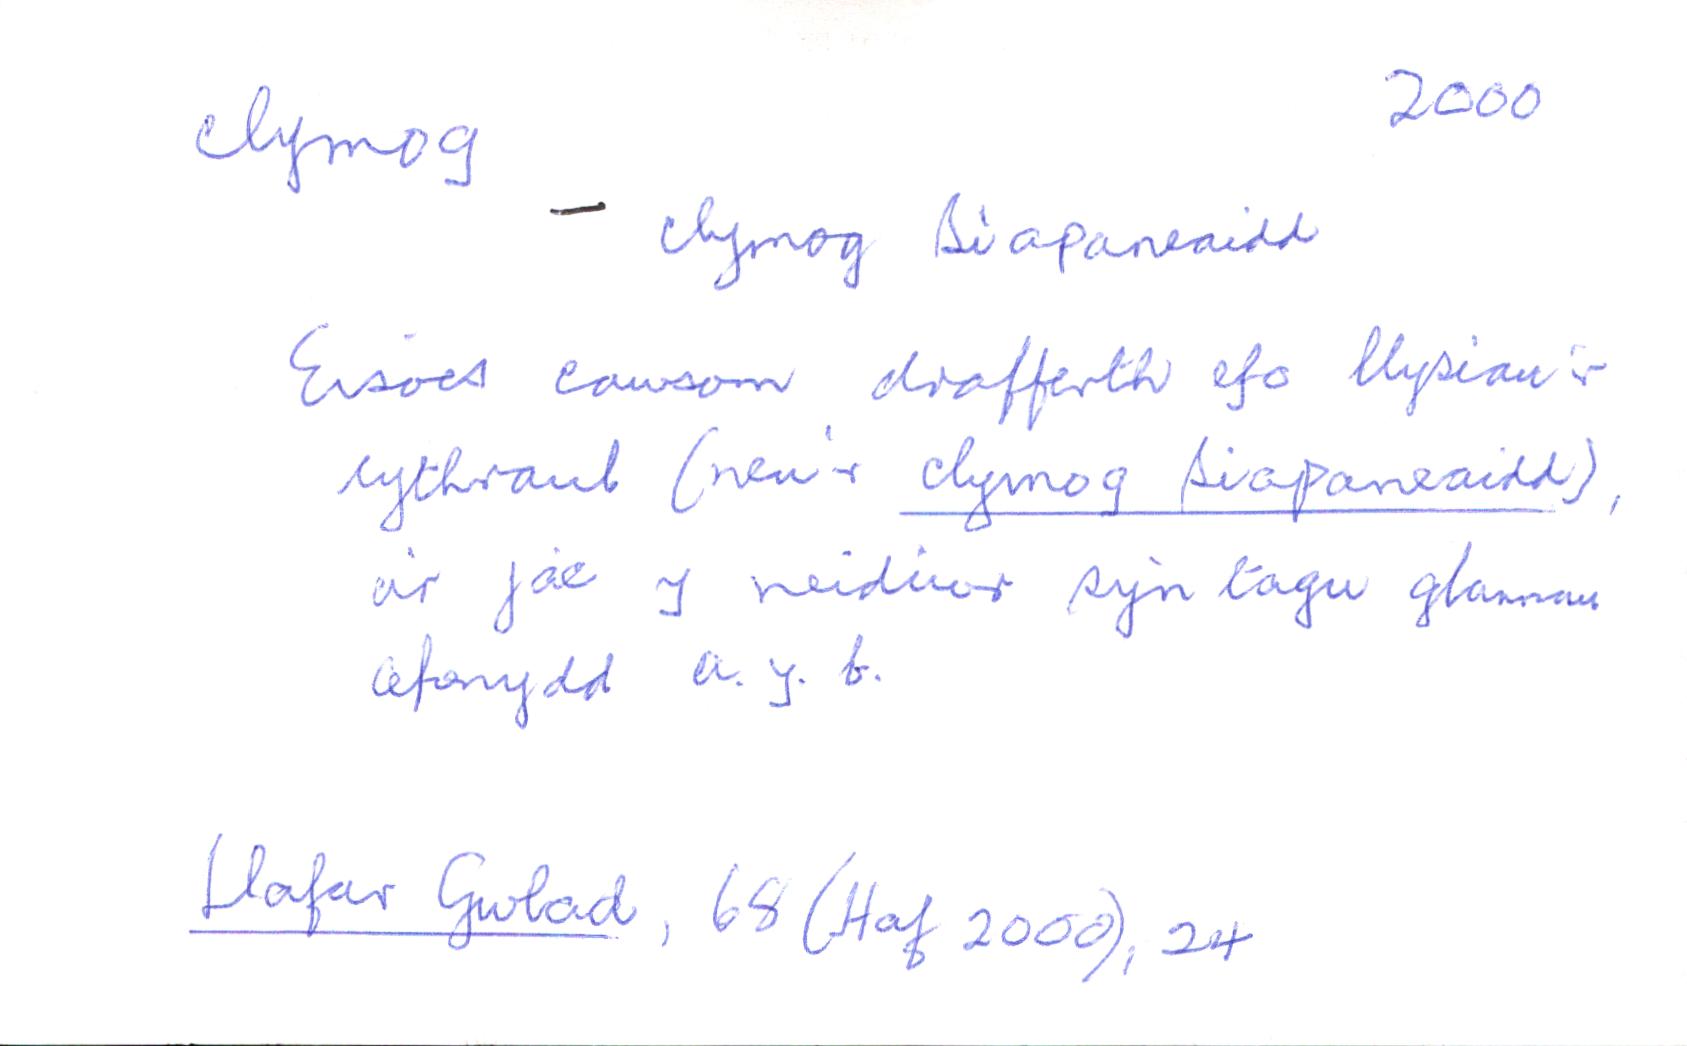 clymog
2000
– clymog Siapaneaidd
Eisoes cawsom drafferth efo llysiau'r
rythraul (neu'r clymog Siapaneaidd),
a'r jac y neidiwr sy'n tagu glannau
afonydd a.y.b.
Llafar Gwlad, 68 (Haf 2000), 24